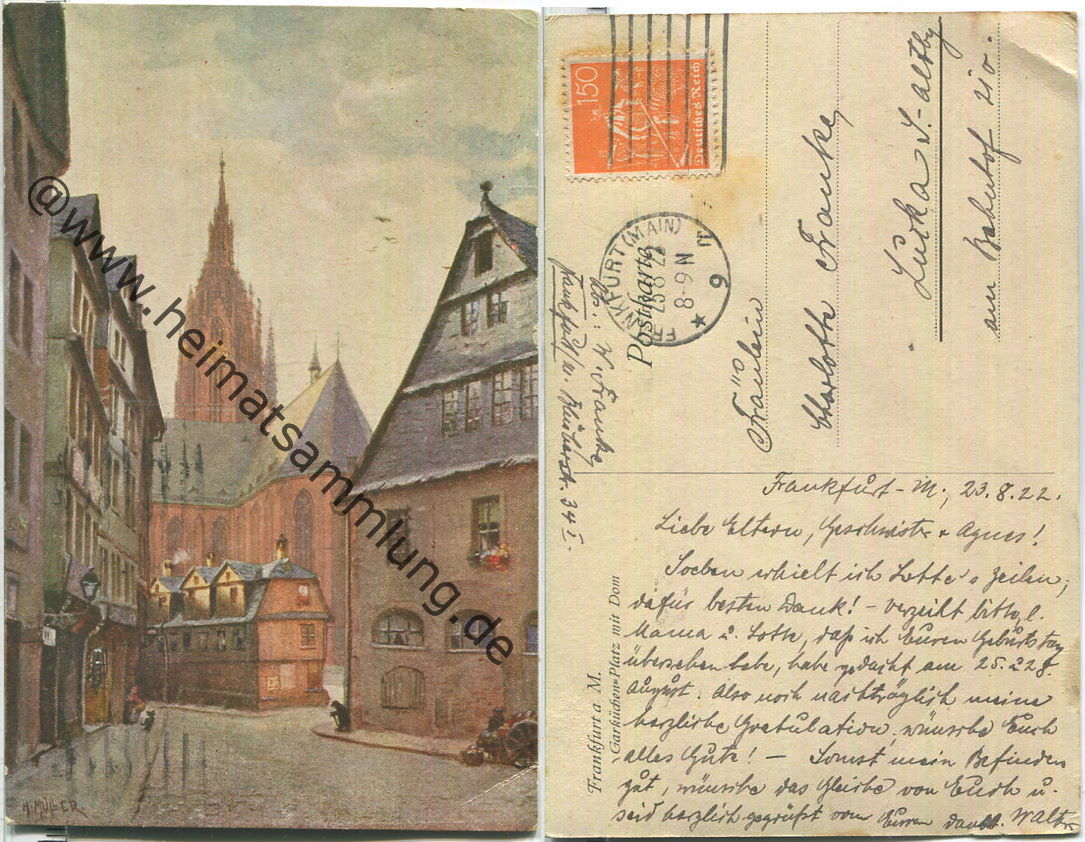 @www.heimatsammlung.de
H. MÜLLER
150
Deutsches Reich
FRANKFURT (MAIN)
23.8.22
8-9 N
9
Postkarte
Abs.: W. Franke,
Frankfurt/M. 34 I.
Fräulein
Charlotte Franke,
Lucka S.-Altbg
am Bahnhof 210.
Frankfurt a M.
Garküchen-Platz mit Dom
Frankfurt-M., 23.8.22.
Liebe Eltern, Geschwister + Agnes!
Soeben erhielt ich Lotte's Zeilen,
dafür besten Dank! – verzeiht bitte, l.
Mama u. Lotte, daß ich Euren Geburtstag
übersehen habe, habe gedacht am 25. 28.
August. Also noch nachträglich meine
herzliche Gratulation, wünsche Euch
alles Gute! – Sonst mein Befinden
gut, wünsche das Gleiche von Euch u.
seid herzlich gegrüßt von Eurem dankb. Walter